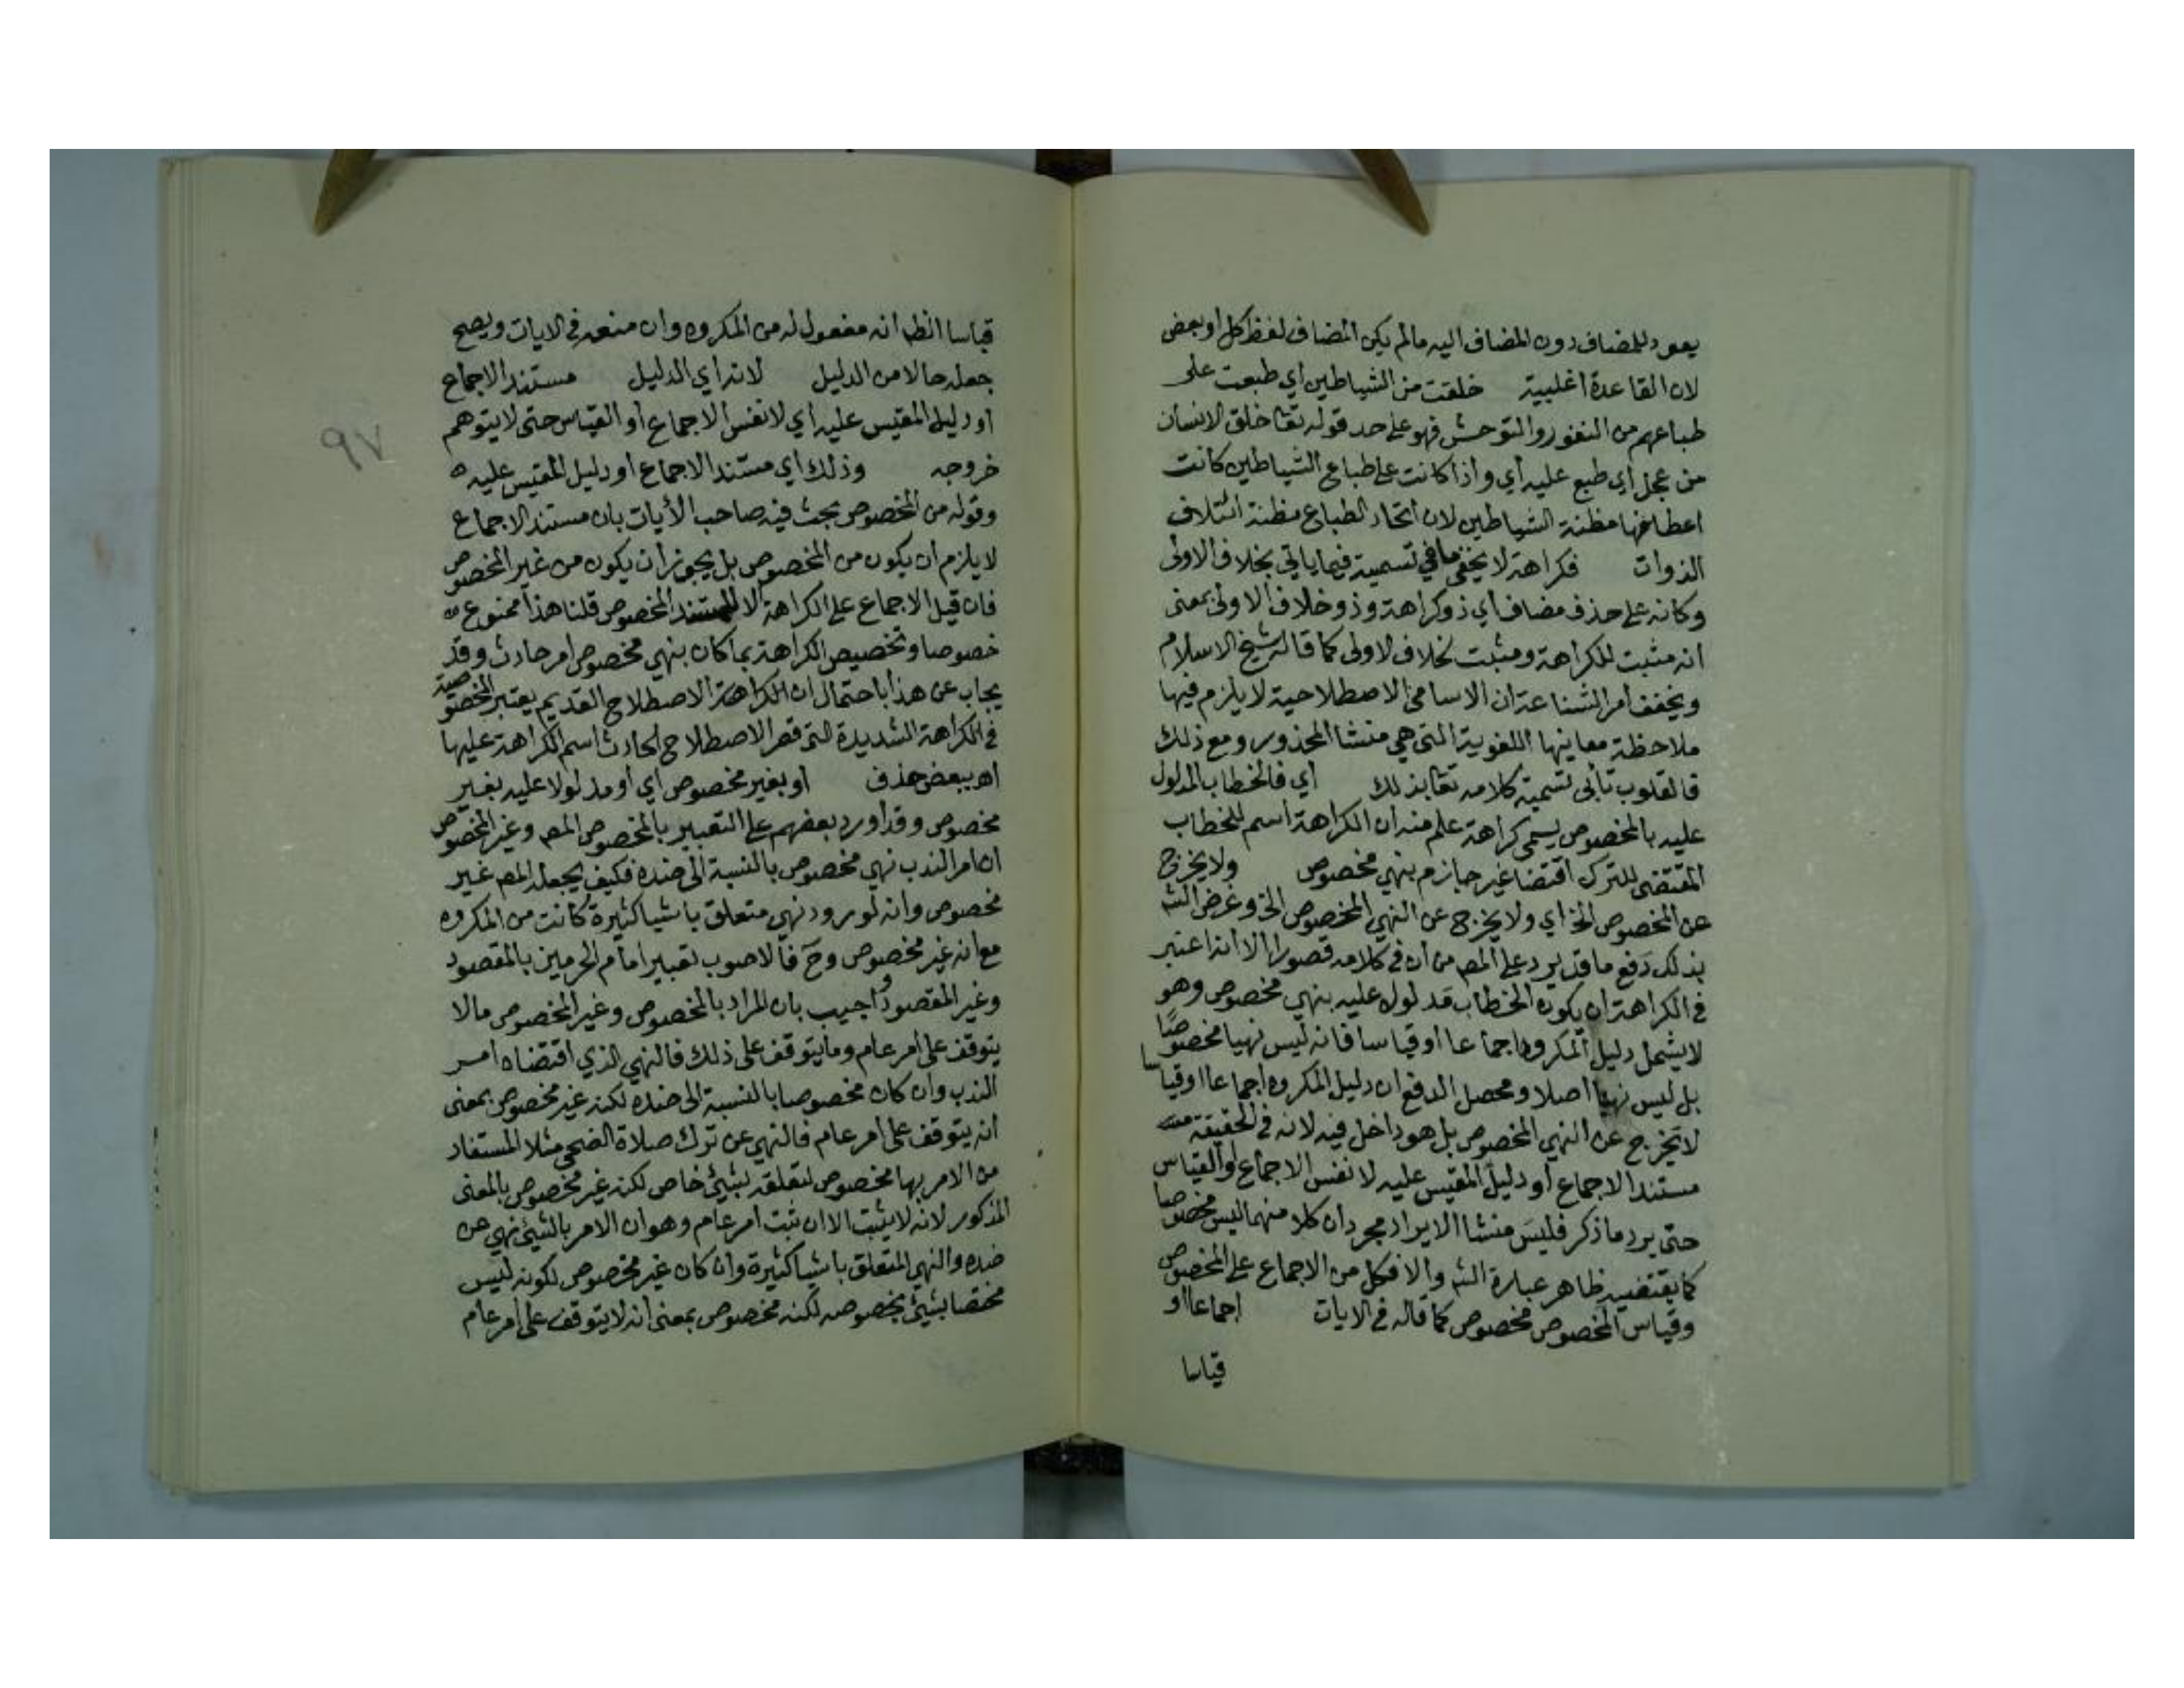 يعود للمضاف دون المضاف اليه مالم يكن المضاف لفظ كل او بعض
لان القاعدة اغلبية خلقت من الشياطين اي طبعت على
طباعهم من النفور والتوحش فهو على حد قوله تعا خلق الانسان
من عجل اي طبع عليه اي واذا كانت على طباع الشياطين كانت
اعطانها مظنة الشياطين لان اتحاد الطباع مظنة ائتلاف
الذوات فكراهة لا يخفى ما في تسمية فيما ياتي بخلاف الاولى
وكانه على حذف مضاف اي ذو كراهة وذو خلاف الاولى بمعنى
انه مثبت للكراهة ومثبت لخلاف الاولى كما قاله شيخ الاسلام
ويخفف امر الشناعة ان الاسامى الاصطلاحية لا يلزم فيها
ملاحظة معانيها اللغوية التى هي منشا المحذور ومع ذلك
فالقلوب تأبى تسمية كلامه تعا بذلك اي فالخطاب المدلول
عليه بالمخصوص يسمى كراهة علم منه ان الكراهة اسم للخطاب
المقتضى للترك اقتضا غير جازم بنهي مخصوص ولا يخرج
عن المخصوص الخ اي ولا يخرج عن النهي المخصوص الخ وغرض الشم
بذلك دفع ما قد يرد على المص من ان في كلامه قصورا الا انه اعتبر
في الكراهة ان يكون الخطاب مدلول عليه بنهي مخصوص وهو
لا يشمل دليل المكروه اجماعا او قياسا فانه ليس نهيا مخصوصًا
بل ليس نهيا اصلا ومحصل الدفع ان دليل المكروه اجماعا او قياسا
لا يخرج عن النهي المخصوص بل هو داخل فيه لانه في الحقيقة
مستند الاجماع او دليل المقيس عليه لا نفس الاجماع او القياس
حتى يرد ما ذكر فليس منشا الايراد مجرد ان كلا منهما ليس مخصوصا
كما يقتضيه ظاهر عبارة الشم والا فكل من الاجماع على المخصوص
وقياس المخصوص مخصوص كما قاله في الايات اجماعا او
قياسا
قياسا الظ انه مفعول له من المكروه وان منعه في الايات ويصح
جعله حالا من الدليل لانه اي الدليل مستند الاجماع
او دليل المقيس عليه اي لا نفس الاجماع او القياس حتى لا يتوهم
خروجه وذلك اي مستند الاجماع او دليل المقيس عليه
وقوله من المخصوص بحث فيه صاحب الأيات بان مستند الاجماع
لا يلزم ان يكون من المخصوص بل يجوز ان يكون من غير المخصوص
فان قيل الاجماع على الكراهة الا لمستند المخصوص قلنا هذا ممنوع
خصوصا وتخصيص الكراهة بما كان بنهي مخصوص امر حادث وقد
يجاب عن هذا باحتمال ان الكراهة الاصطلاح القديم يعتبر المخصوصية
في الكراهة الشديدة التى قصر الاصطلاح الحادث اسم الكراهة عليها
اه ببعض حذف او بغير مخصوص اي او مدلولا عليه بغير
مخصوص وقد اورد بعضهم على التعبير بالمخصوص المص وغير المخصوص
ان امر الندب نهي مخصوص بالنسبة الى ضده فكيف يجعله المص غير
مخصوص وانه لو ورد نهي متعلق باشيا كثيرة كانت من المكروه
مع انه غير مخصوص وحَ فالاصوب تعبير امام الحرمين بالمقصود
وغير المقصود واجيب بان المراد بالمخصوص وغير المخصوص مالا
يتوقف على امر عام وما يتوقف على ذلك فالنهي الذي اقتضاه امر
الندب وان كان مخصوصا بالنسبة الى ضده لكنه غير مخصوص بمعنى
انه يتوقف على امر عام فالنهي عن ترك صلاة الضحى مثلا المستفاد
من الامر بها مخصوص لتعلقه بشيئ خاص لكنه غير مخصوص بالمعنى
المذكور لانه لا يثبت الا ان ثبت امر عام وهو ان الامر بالشيئ نهي عن
ضده والنهي المتعلق باشيا كثيرة وان كان غير مخصوص لكونه ليس
مختصا بشيئ بخصوصه لكنه مخصوص بمعنى انه لا يتوقف على امر عام
٩٧